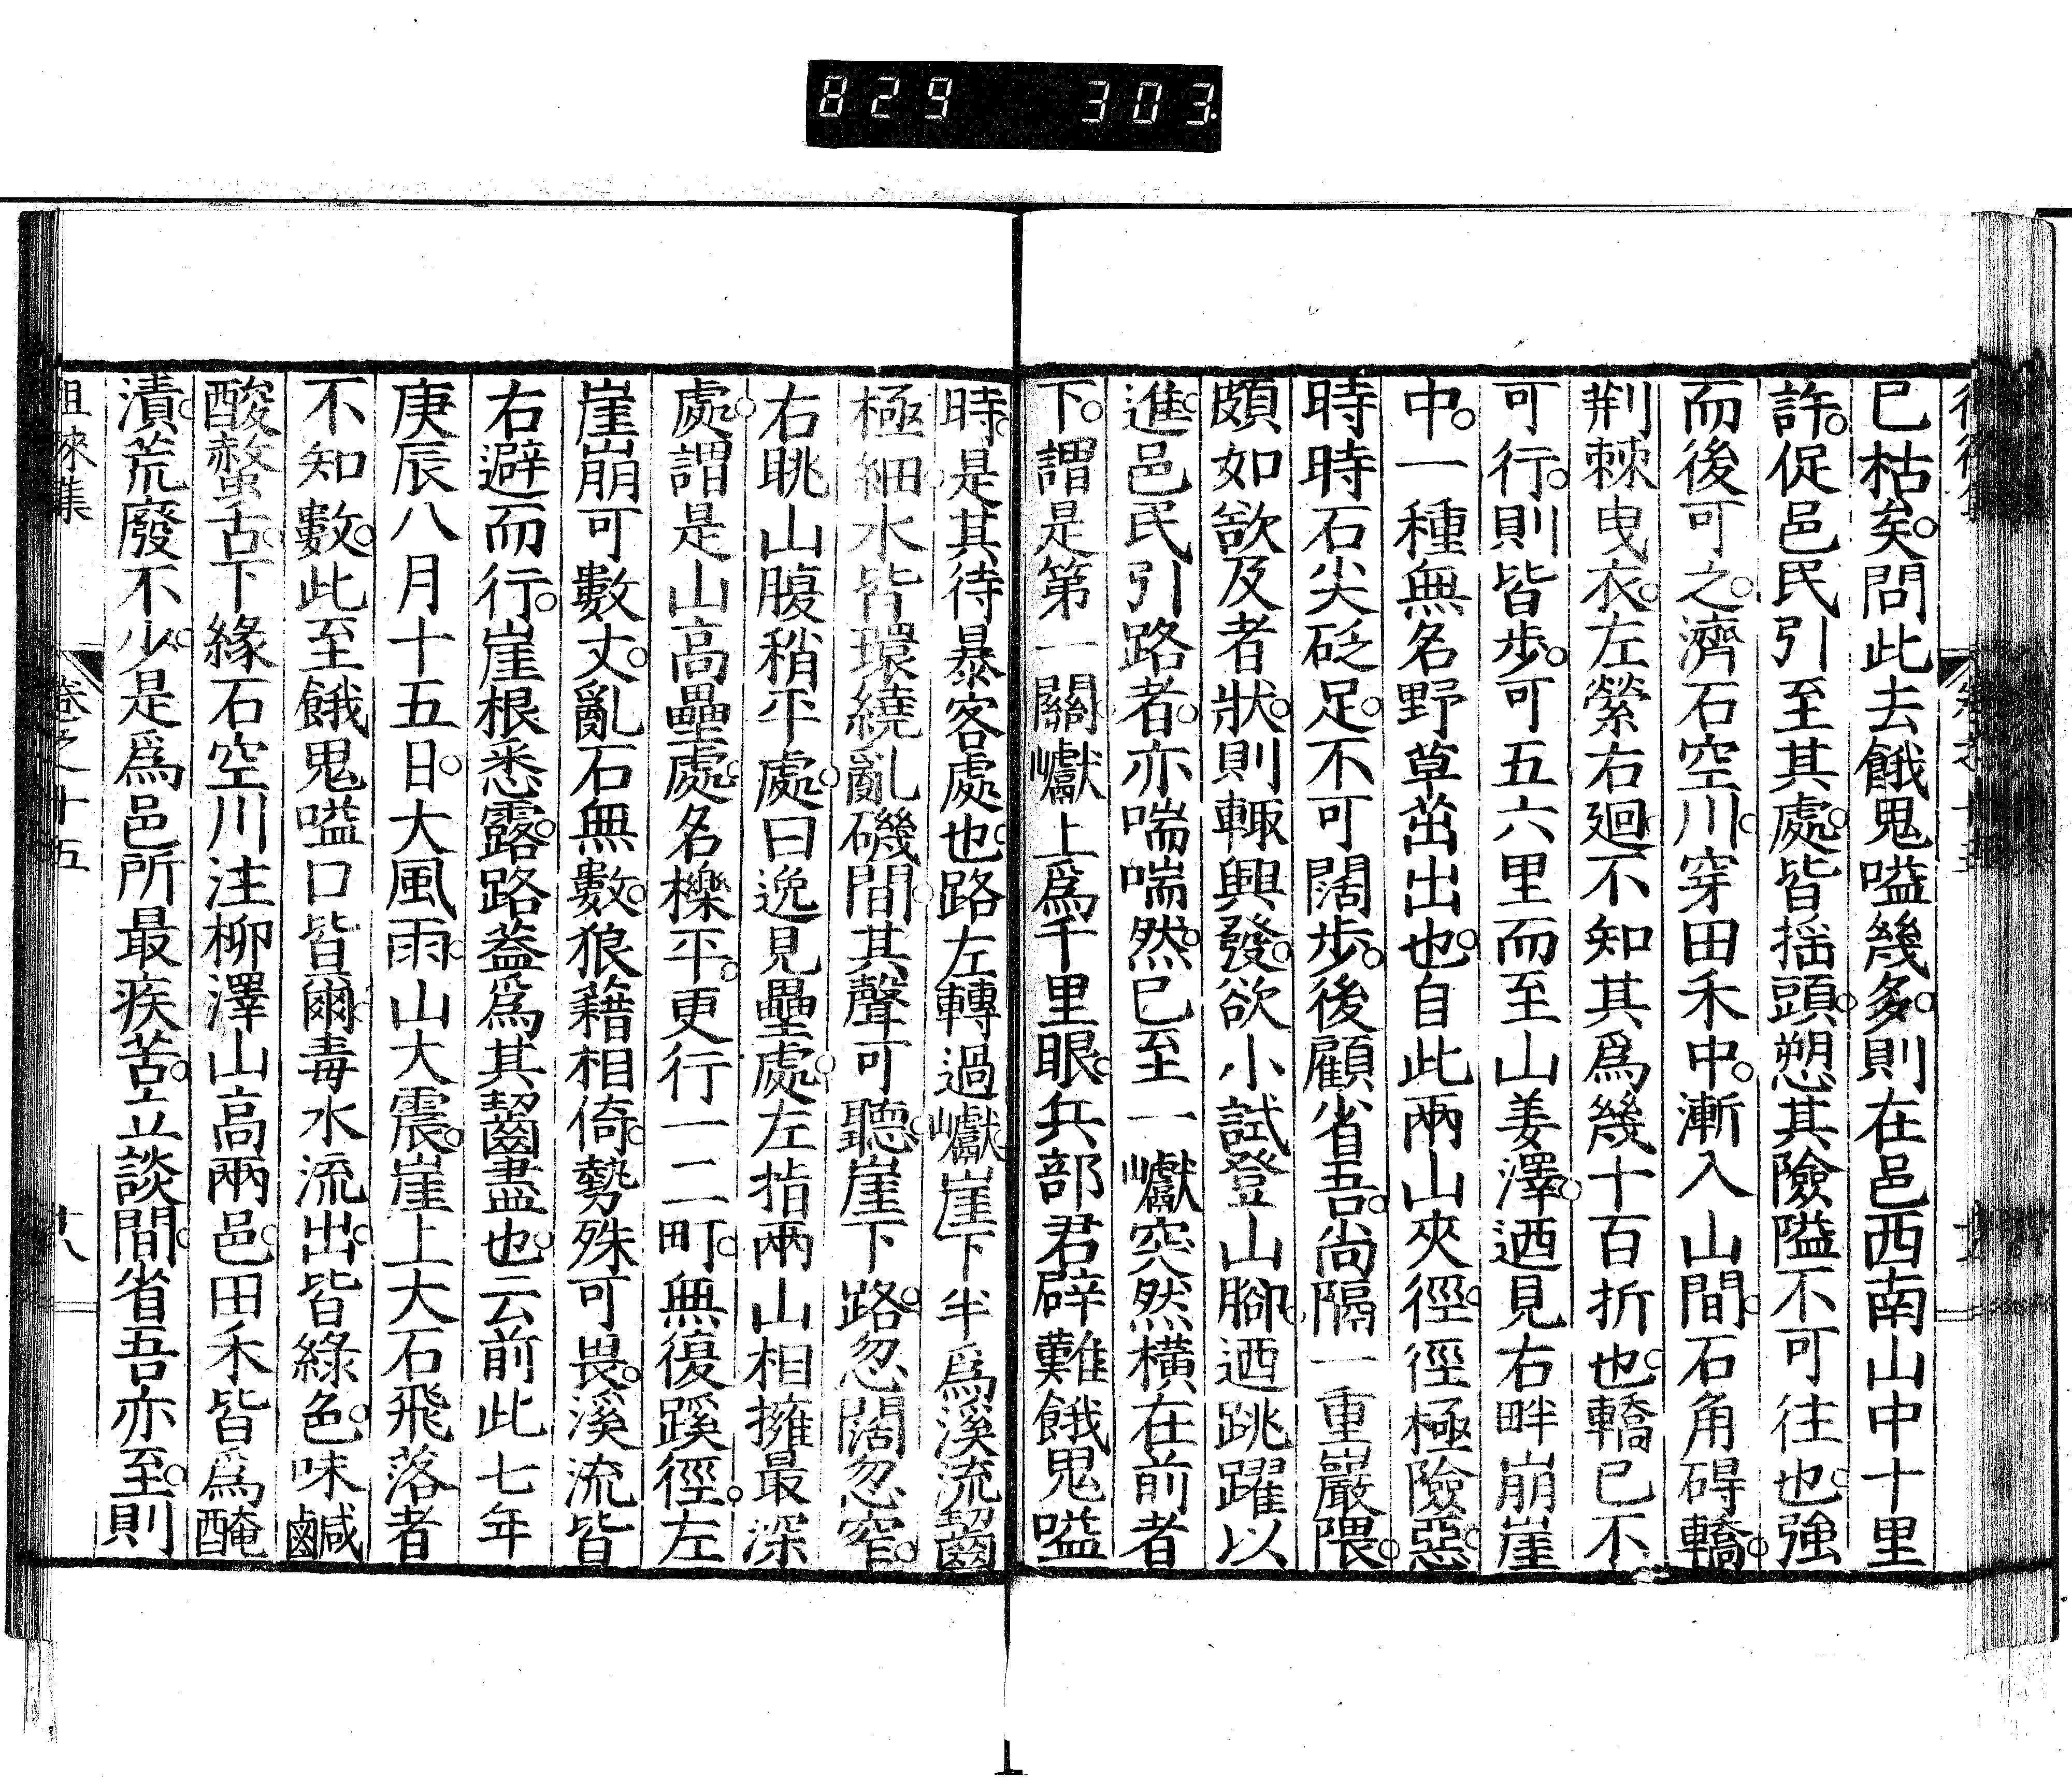 829 303
已枯矣。問此去餓鬼嗌幾多。則在邑西南山中十里
許。促邑民引至其處。皆揺頭。愬其險隘不可往也。強
而後可之。濟石空川。穿田禾中。漸入山間。石角碍轎。
荆棘曳衣。左縈右廻。不知其爲幾十百折也。轎已不
可行。則皆歩。可五六里而至山姜澤。迺見右畔崩崖
中。一種無名野草茁出也。自此兩山夾徑。徑極險惡。
時時石尖砭足。不可闊歩。後顧省吾。尚隔一重巖隈。
頗如欲及者狀。則輙興發。欲小試登山腳。迺跳躍以
進。邑民引路者。亦喘喘然。已至一巘突然横在前者
下。謂是第一關。巘上爲千里眼。兵部君辟難餓鬼嗌
時。是其待暴客處也。路左轉過巘。崖下半爲溪流齧
極細。水皆環繞亂磯間。其聲可聽。崖下路。忽闊忽窄。
右眺山腹稍平處。曰逸見壘處。左指兩山相擁最深
處。謂是山高壘處。名櫟平。更行一二町。無復蹊徑。左
崖崩可數丈。亂石無數。狼藉相倚。勢殊可畏。溪流皆
右避而行。崖根悉露。路葢爲其齧盡也。云前此七年
庚辰八月十五日。大風雨。山大震。崖上大石飛落者
不知數。此至餓鬼嗌口皆爾。毒水流出。皆綠色。味鹹
酸螫舌。下緣石空川注柳澤山高兩邑。田禾皆爲醃
漬。荒廢不少。是爲邑所最疾苦。立談間。省吾亦至。則
徂徠集 卷之十五 十八